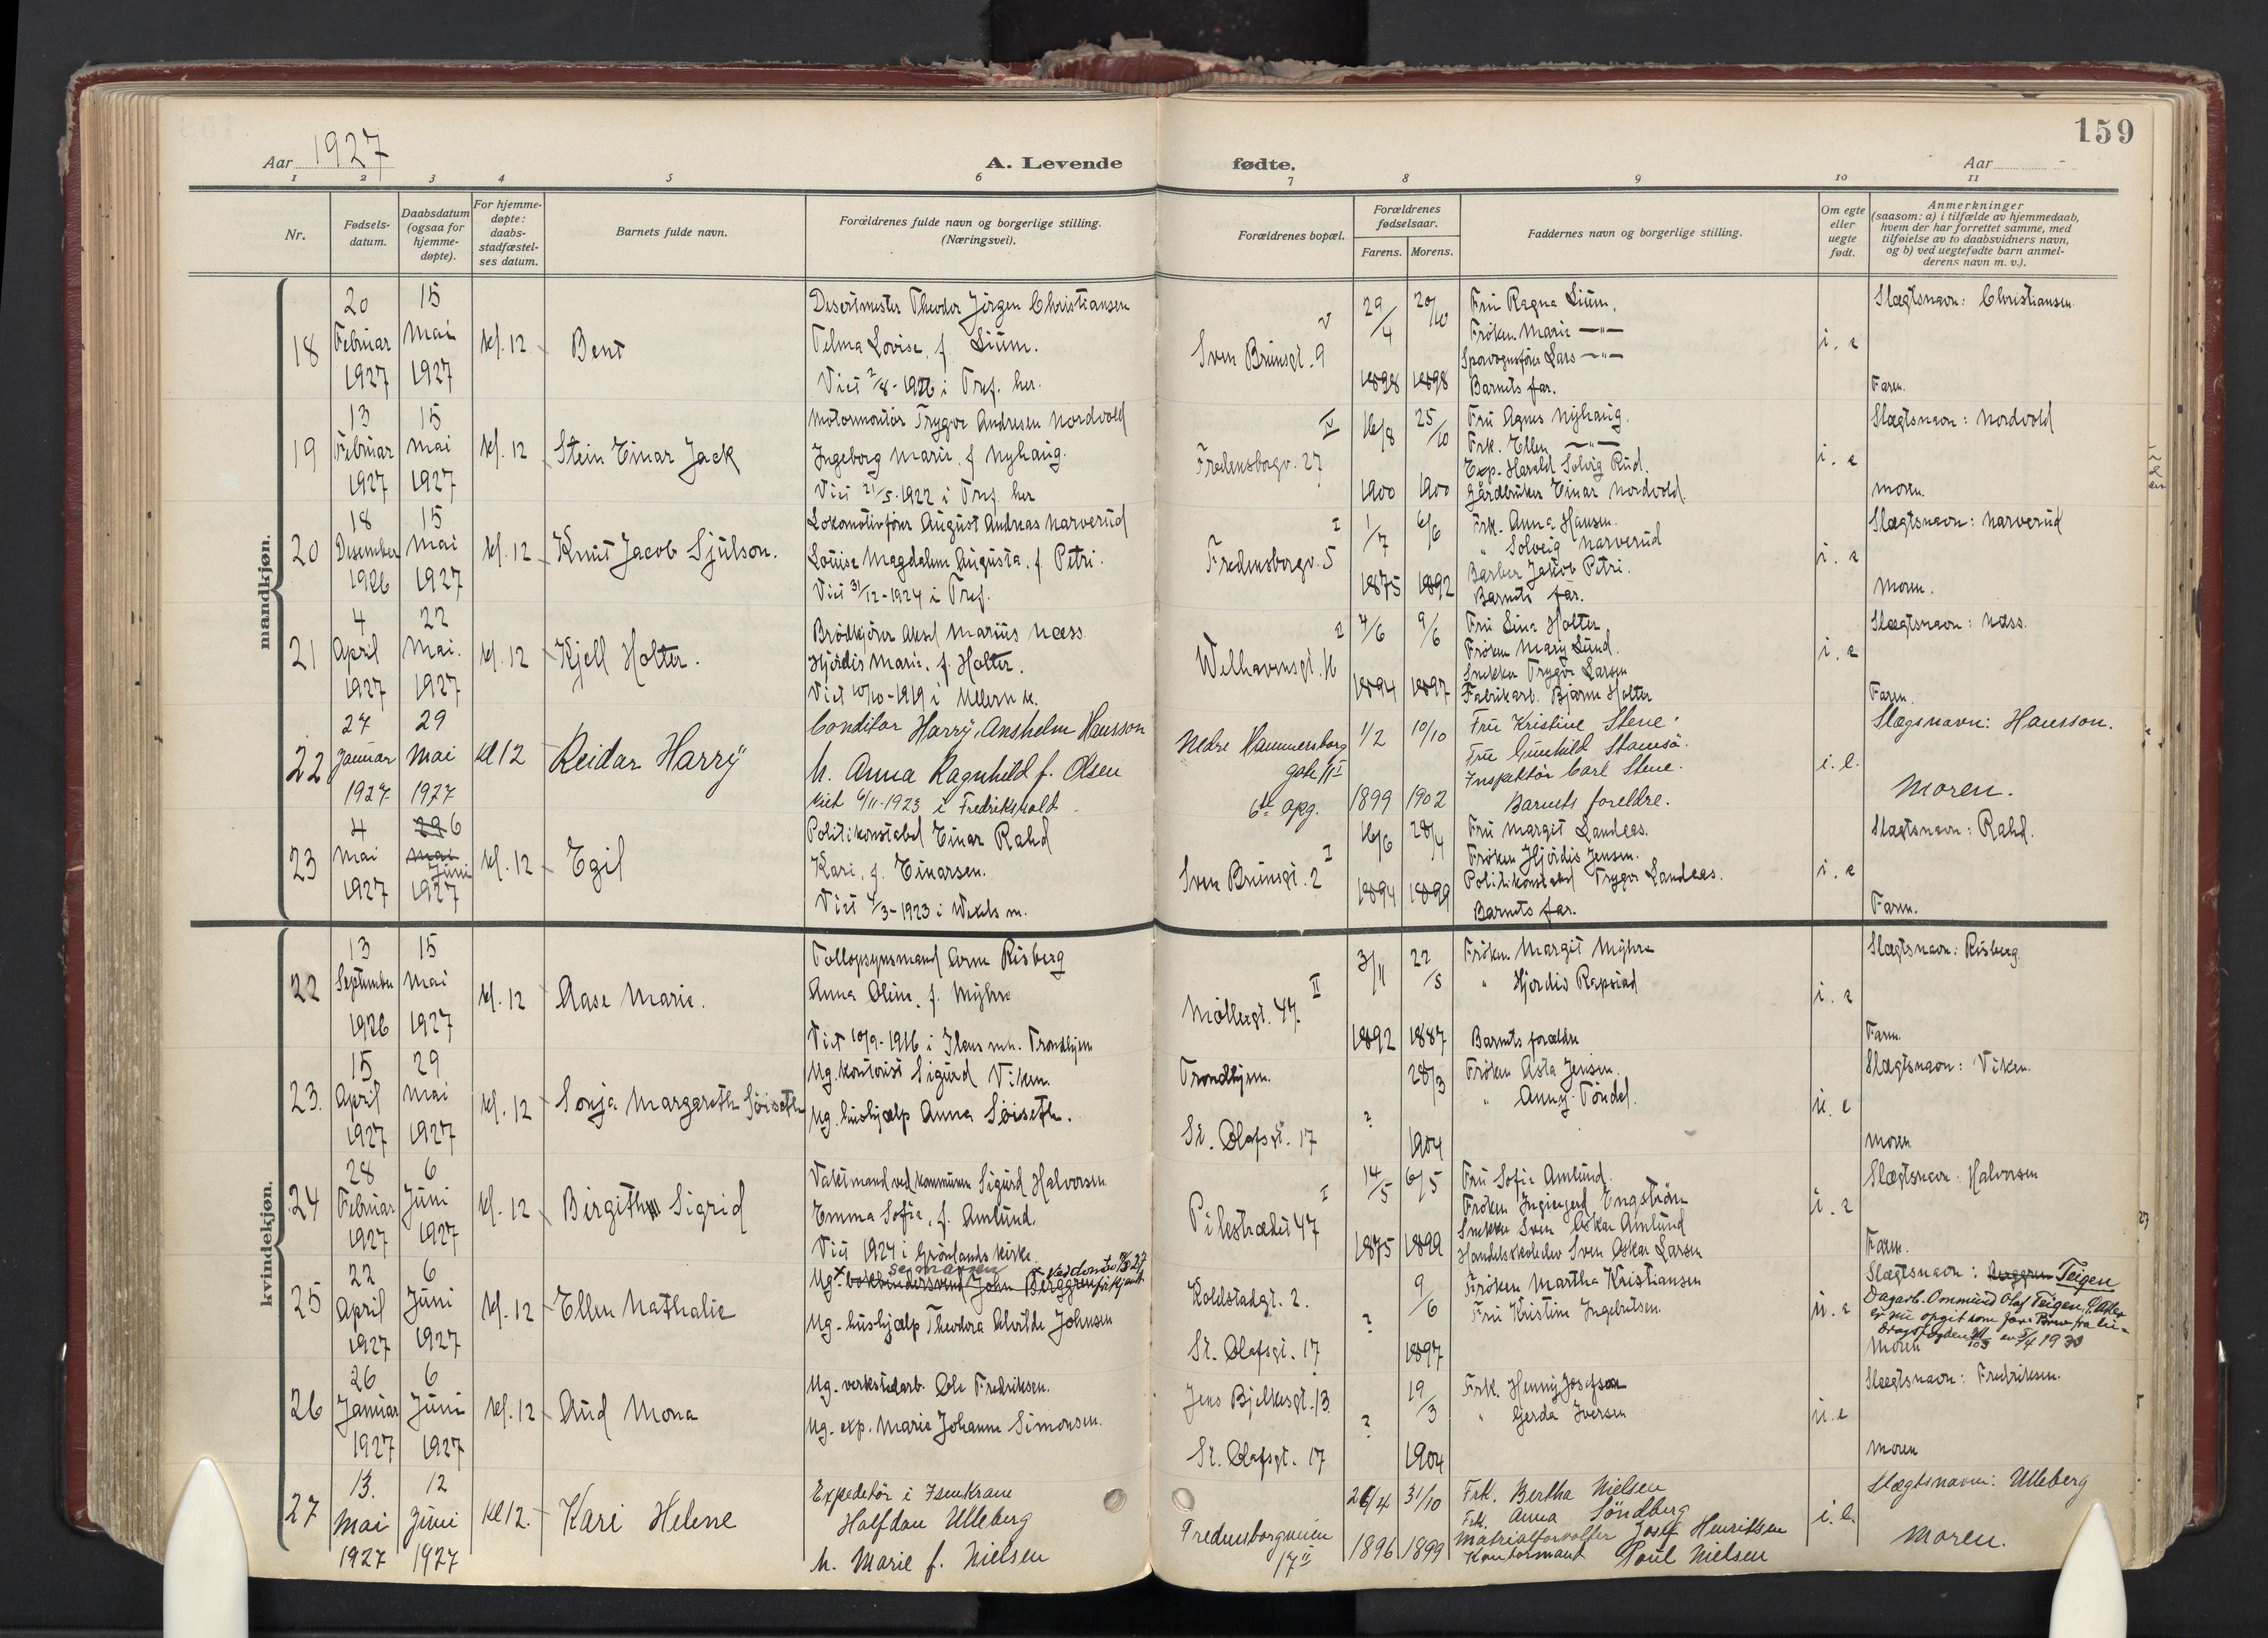 159
Aar 1927
A. Levende
fødte.
Aar
1 2 3 4 5 6 7 8 9 10 11
Nr.
Fødsels-
datum.
Daabsdatum
(ogsaa for
hjemme-
døpte).
For hjemme-
døpte:
daabs-
stadfæstel-
ses datum.
Barnets fulde navn.
Forældrenes fulde navn og borgerlige stilling.
(Næringsvei).
Forældrenes bopæl.
Forældrenes
fødselsaar.
Farens. Morens.
Faddernes navn og borgerlige stilling.
Om egte
eller
uegte
født.
Anmerkninger
(saasom: a) i tilfælde av hjemmedaab,
hvem der har forrettet samme, med
tilføielse av to daabsvidners navn,
og b) ved uegtefødte barn anmel-
derens navn m. v.).
mandkjøn.
18
20 Februar 1927
15 Mai 1927
kl. 12
Bent
Theodor Jörgen Christiansen
Telma Lovise, f. Lium.
Viet 7/8-1926 i Tref. her.
Sven Brunsgt. 9 V
29/4 1898
20/10 1898
Fru Ragna Lium.
Fröken Marie —"—
Sporvognsförer Lars —"—
Barnets far.
i. e
Slægtsnavn: Christiansen.
Faren.
19
13 Februar 1927
15 Mai 1927
kl. 12
Stein Einar Jack
Motormontör Trygve Andresen Nordvold
Ingeborg Marie, f. Nyhaug.
Viet 21/5-1922 i Tref. her
Fredensborgv. 27 IV
16/8 1900
25/10 1900
Fru Agnes Nyhaug.
Frk. Ellen —"—
Exp. Harald Solvig Rud.
Gårdbruker Einar Nordvold.
i. e
Slægtsnavn: Nordvold
Moren.
20
18 Desember 1926
15 Mai 1927
kl. 12
Knut Jacob Sjulson.
Lokomotivförer August Andreas Narverud
Louise Magdalene Augusta, f. Petri.
Viet 31/12-1924 i Tref.
Fredensborgv. 5 I
1/7 1875
6/6 1892
Frk. Anna Hansen.
" Solveig Narverud
Barber Jakob Petri.
Barnets far.
i. e
Slægtsnavn: Narverud
Moren.
21
4 April 1927
22 Mai. 1927
kl. 12
Kjell Holter.
Brödkjörer Aksel Marius Næss
Hjördis Marie, f. Holter.
Viet 10/10-1919 i Ullern k.
Welhavensgt. 16
4/6 1894
9/6 1897
Fru Lina Holter.
Fröken Mary Lund.
Snekker Trygve Larsen
Fabrikarb. Bjarne Holter
i. e
Slægtsnavn: Næss.
Faren.
22
27 Januar 1927
29 Mai 1927
Kl 12
Reidar Harry
Conditor Harry Anshelm Hansson
h. Anna Ragnhild f. Olsen
viet 6/11-1923 i Fredrikshald.
Nedre Hammersborg
gate 11 I
6te opg.
1/2 1899
10/10 1902
Fru Kristine Stene.
Fru Gunhild Stamsö.
Inspektör Carl Stene.
Barnets foreldre.
i. e.
Slægsnavn: Hansson.
Moren.
23
4 Mai 1927
29 6 Mai Juni 1927
kl. 12
Egil
Politikonstabel Einar Rahd
Kari, f. Einarsen.
Viet 4/3-1923 i Wexels m.
Sven Brunsgt. 2 I
16/6 1894
28/4 1899
Fru Margit Landaas.
Fröken Hjördis Jensen.
Politikonstabel Trygve Landaas.
Barnets far.
i. e
Slægtsnavn: Rahd.
Faren.
kvindekjøn.
22
13 September 1926
15 Mai 1927
kl. 12
Aase Marie.
Tollopsynsmand Arne Risberg
Anna Oline, f. Myhre
Viet 10/9-1916 i Ilens m.h. Trondhjem
Møllergt. 47. II
3/11 1892
22/5 1887
Fröken Margit Myhre
" Hjördis Rapstad
Barnets forældre
i. e
Slægtsnavn: Risberg.
Faren.
23.
15 April 1927
29 Mai 1927
kl. 12
Sonja Margareth Söiseth
Ug. kontorist Sigurd Viken.
Ug. hushjælp Anna Söiseth.
Trondhjem.
St. Olafsgt. 17
?
28/3 1904
Fröken Asta Jensen.
" Anny Töndel.
u. e
Slægtsnavn: Viken.
Moren
24
28 Februar 1927
6 Juni 1927
kl. 12
Birgith Sigrid
Vaktmand ved kommunen Sigurd Halvorsen
Emma Sofie, f. Amlund.
Viet 1924 i Grönlands kirke.
Pilestrædet 47 I
14/5 1875
6/5 1899
Fru Sofie Amlund.
Fröken Ingiegerd Engström
Snekker Sven Oskar Amlund
Handelsskoleelev Sven Oskar Larsen
i. e
Slægtsnavn: Halvorsen
Faren.
25
22 April 1927
6 Juni 1927
kl. 12
Ellen Nathalie
Ug. bokbindersvend John Berggren
Ug. hushjælp Theodora Alvilde Johnsen
Koldstadgt. 2.
St. Olafsgt. 17
?
9/6 1897
Fröken Martha Kristiansen
Fru Kristine Ingebretsen.
u. e
Slægtsnavn: Berggren Teigen
Dagarb. Ommund Olaf Teigen,
er nu opgit som far. Brev fra bi-
dragsfogden
Moren
26
26 Januar 1927
6 Juni 1927
kl. 12
Aud Mona
Ug. verkstedarb. Ole Fredriksen.
Ug. exp. Marie Johanne Simonsen.
Jens Bjelkesgt. 13
St. Olafsgt. 17
?
19/3 1904
Frk. Henny Josefson
" Gerda Iversen
u. e
Slægtsnavn: Fredriksen.
Moren
27
13. Mai 1927
12 Juni 1927
Kl 12.
Kari Helene
Expeditör i Isenkram
Halfdan Ulleberg
h. Marie f. Nielsen
Fredensborgveien
17 II
26/4 1896
31/10 1899
Frk. Bertha Nielsen
Frk. Anna Söndberg
Materialforvalter Josef Henriksen
Kontormand Poul Nielsen
i. e.
Slægtsnavn: Ulleberg
Moren.